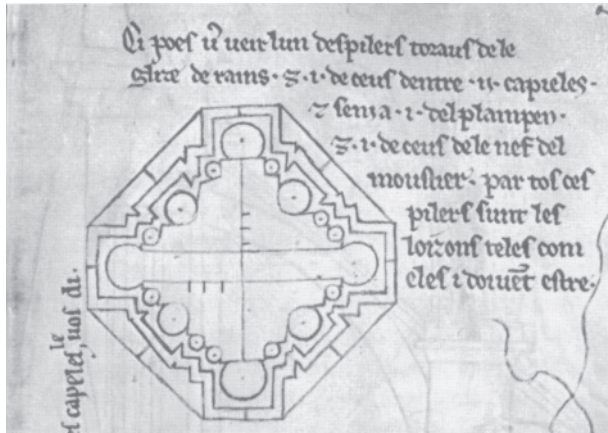 Ci poes vͦ veir lun des pilers toraus de le
glize de rains · ⁊ · i · de ceus dentre · ij · capieles ·
⁊ sen i a · i · del plain pen ·
⁊ · i · de ceus de le nef del
moustier · par tos ces
pilers sunt les
loizons teles com
eles i doivēt estre ·
capeles, vos di ·
le